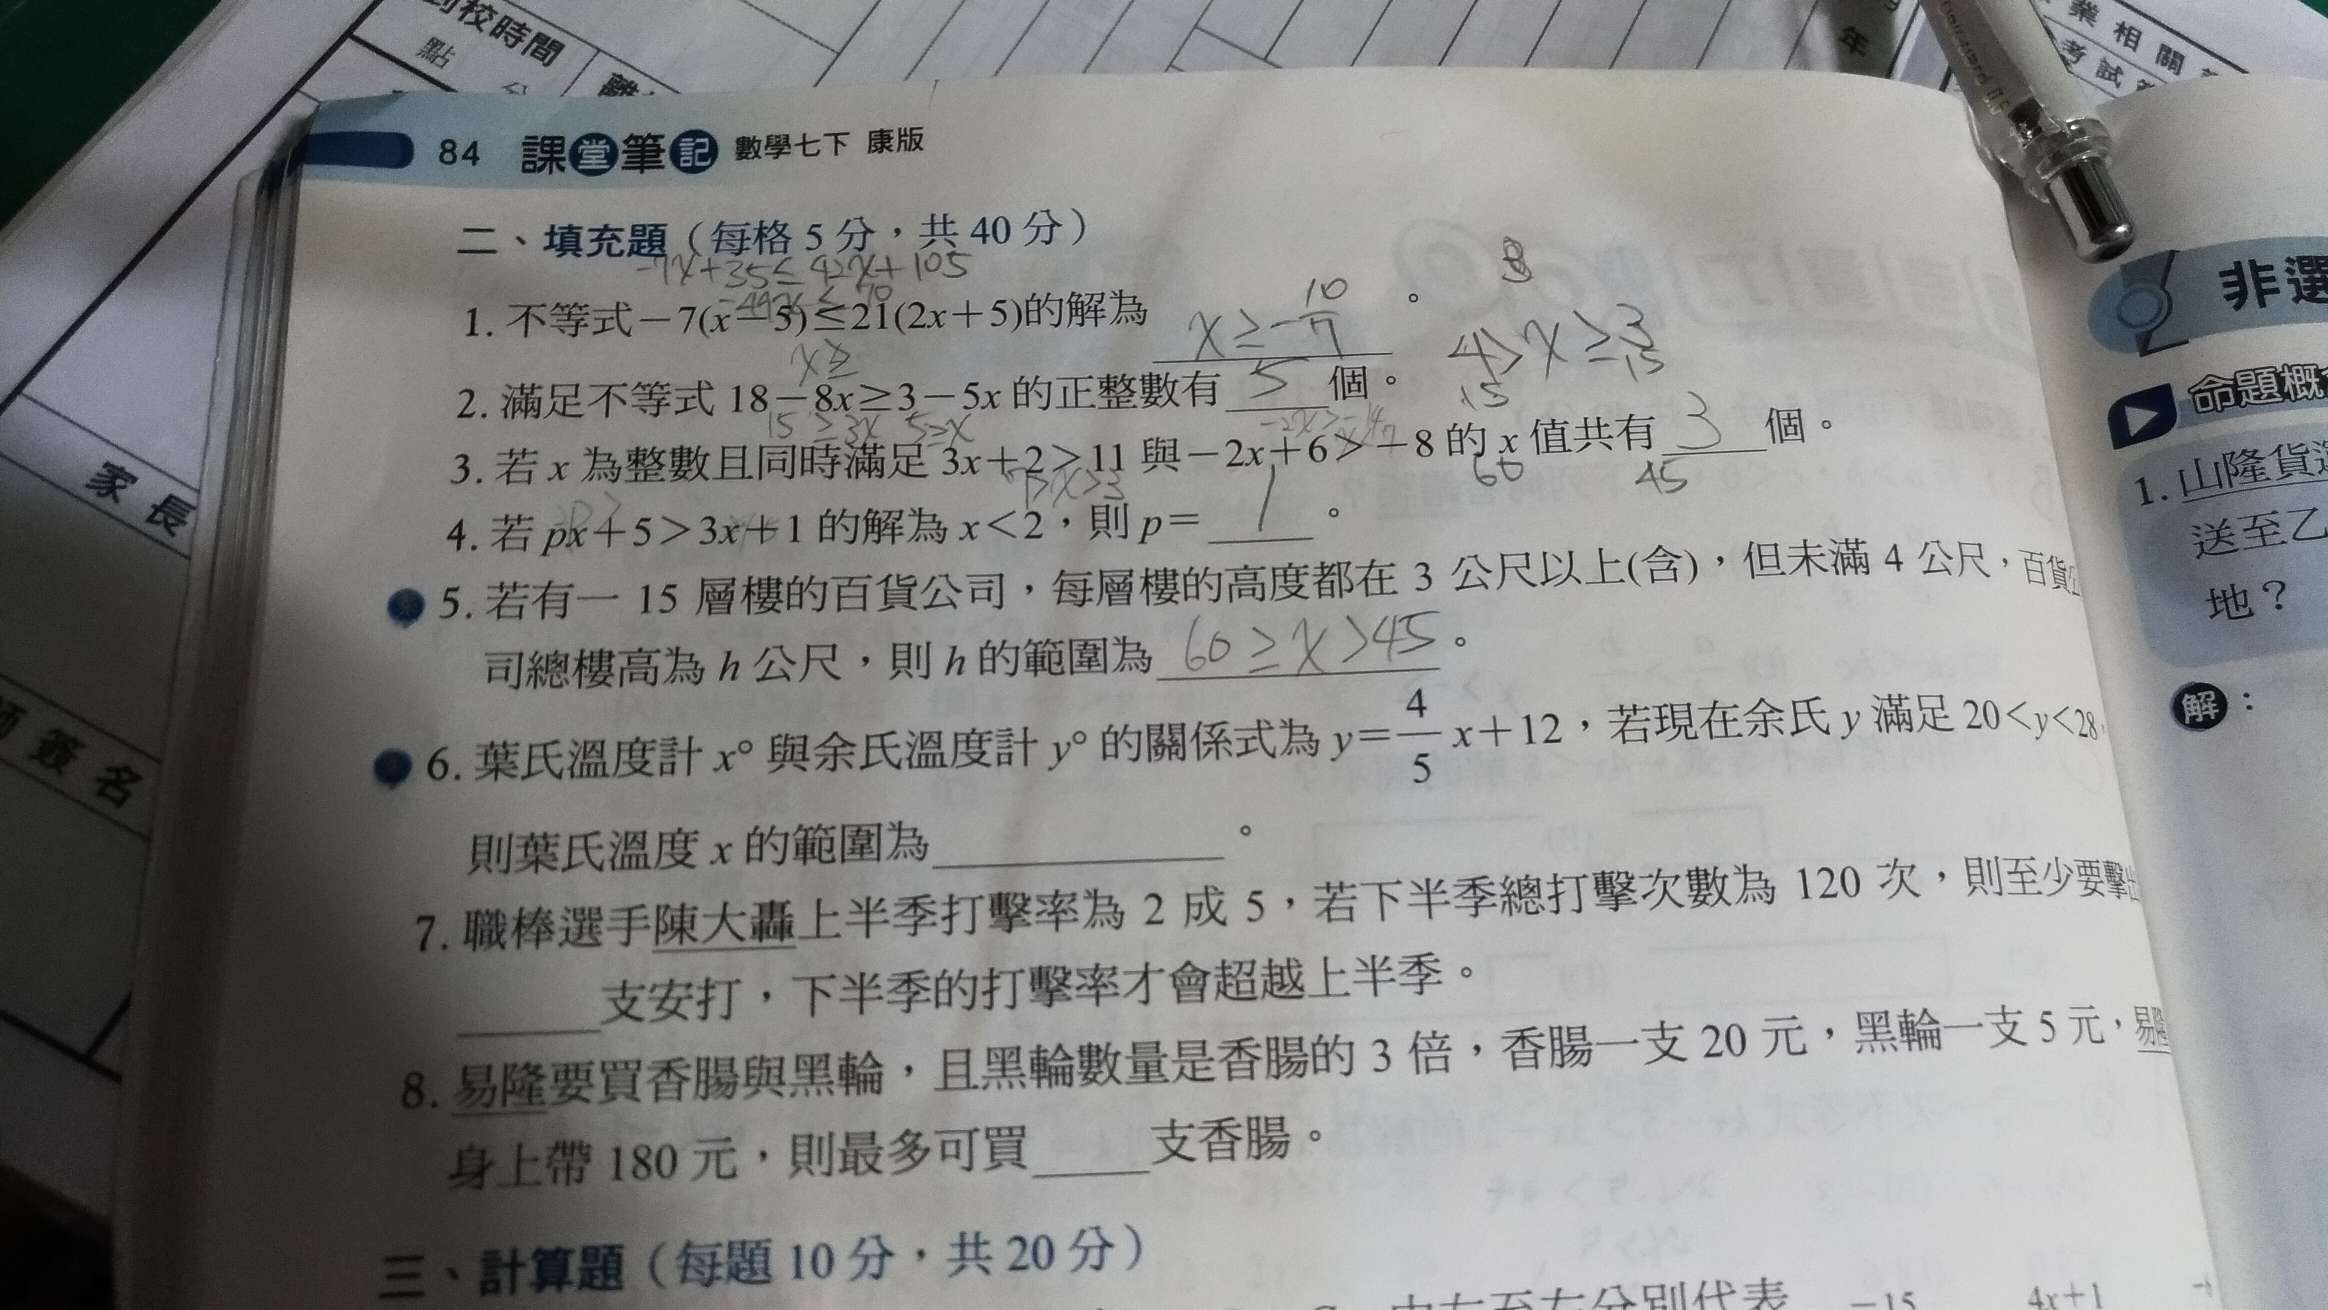 到校時間
點 分
年
業相關
考試
84 課堂筆記 數學七下 康版
二、填充題(每格 5 分,共 40 分)
-7x+35≤42x+105
-49x≤70
1. 不等式-7(x-5)≤21(2x+5)的解為 x≥-10/7 。
x≥
4>x≥3
15 15
2. 滿足不等式 18-8x≥3-5x 的正整數有 5 個。
15≥3x 5≥x
3. 若 x 為整數且同時滿足 3x+2>11 與-2x+6>-8 的 x 值共有 3 個。
7>x>3
60 45
4. 若 px+5>3x+1 的解為 x<2,則 p= 1 。
5. 若有一 15 層樓的百貨公司,每層樓的高度都在 3 公尺以上(含),但未滿 4 公尺,百貨公
司總樓高為 h 公尺,則 h 的範圍為 60≥x>45 。
6. 葉氏溫度計 x° 與余氏溫度計 y° 的關係式為 y=4/5 x+12,若現在余氏 y 滿足 20<y<28,
則葉氏溫度 x 的範圍為 。
7. 職棒選手陳大轟上半季打擊率為 2 成 5,若下半季總打擊次數為 120 次,則至少要擊出
支安打,下半季的打擊率才會超越上半季。
8. 易隆要買香腸與黑輪,且黑輪數量是香腸的 3 倍,香腸一支 20 元,黑輪一支 5 元,易隆
身上帶 180 元,則最多可買 支香腸。
三、計算題(每題 10 分,共 20 分)
-15 4x+1
家長
簽名
非選
命題概
1. 山隆貨
送至乙
地?
解: